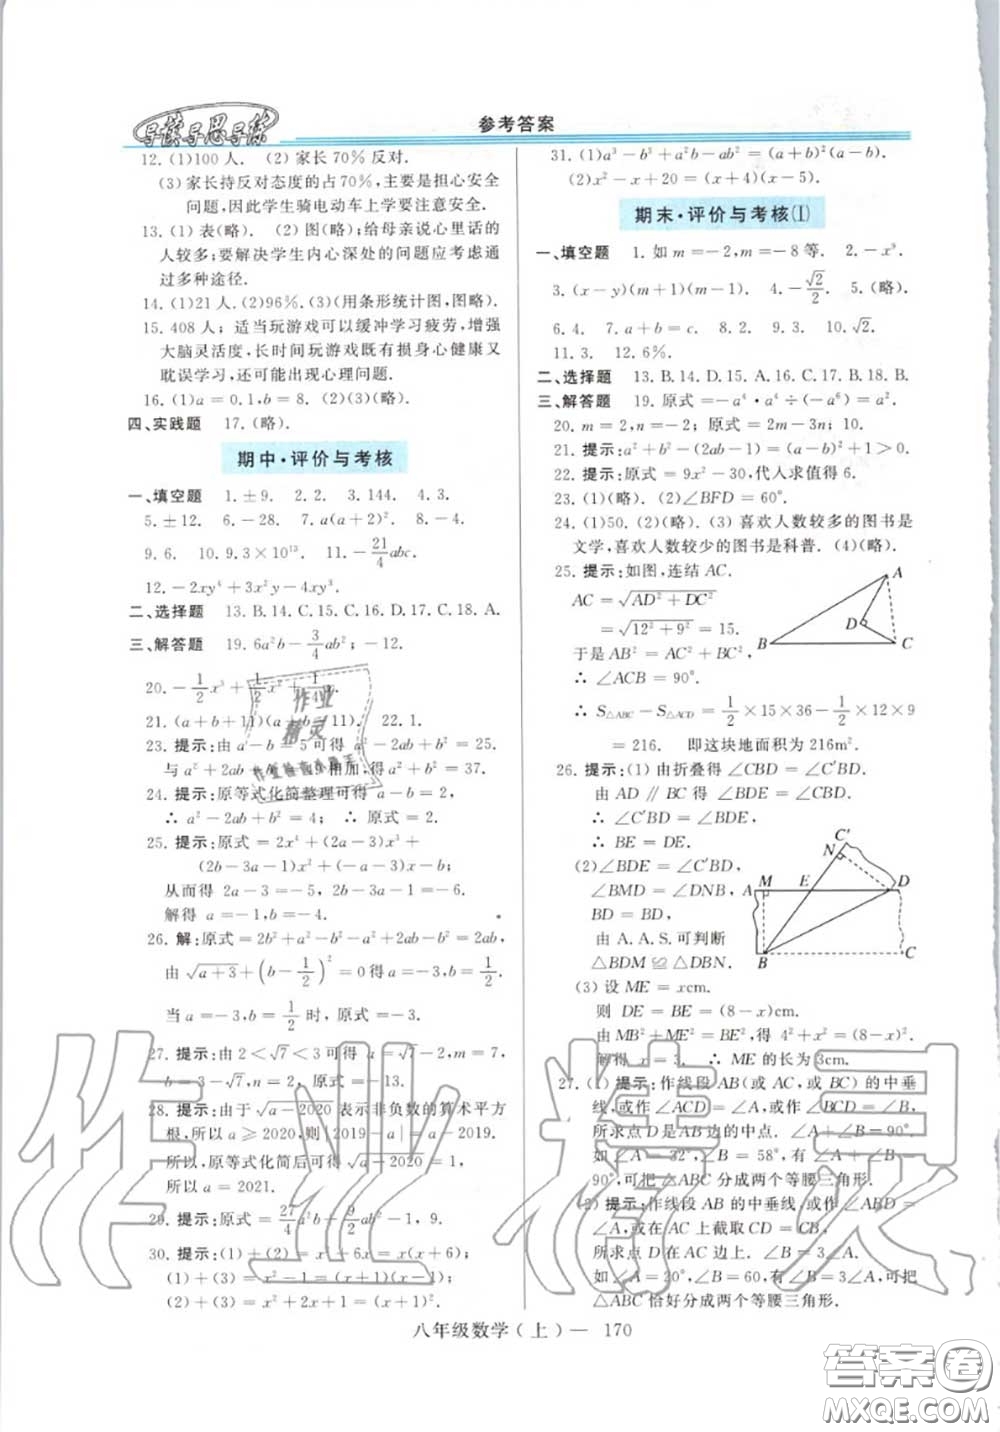 导读导思导练
参考答案
12. (1)100人. (2)家长70%反对.
(3)家长持反对态度的占70%,主要是担心安全
问题,因此学生骑电动车上学要注意安全.
13. (1)表(略). (2)图(略);给母亲说心里话的
人较多;要解决学生内心深处的问题应考虑通
过多种途径.
14. (1)21人. (2)96%. (3)(用条形统计图,图略).
15. 408人;适当玩游戏可以缓冲学习疲劳,增强
大脑灵活度,长时间玩游戏既有损身心健康又
耽误学习,还可能出现心理问题.
16. (1)a=0.1,b=8. (2)(3)(略).
四、实践题 17. (略).
期中·评价与考核
一、填空题 1. ±9. 2. 2. 3. 144. 4. 3.
5. ±12. 6. -28. 7. a(a+2)². 8. 4.
9. 6. 10. 9.3×10¹³. 11. -21/4 abc.
12. -2xy⁴+3x²y-4xy³.
二、选择题 13. B. 14. C. 15. C. 16. C. 17. C. 18. A.
三、解答题 19. 6a²b-3/4ab²;-12.
20. -1/2x³+1/2x²+1/4x.
21. (a+b+11)(a+b-11). 22. 1.
23. 提示:由a-b=5可得a²-2ab+b²=25.
与a²+2ab+b²=49相加,得a²+b²=37.
24. 提示:原等式化简整理可得a-b=2,
∴ a²-2ab+b²=4; ∴ 原式=2.
25. 提示:原式=2x⁴+(2a-3)x³+
(2b-3a-1)x²+(-3b-a)x-b;
从而得 2a-3=-5, 2b-3a-1=-6.
解得 a=-1,b=-4.
26. 解:原式=2b²+a²-b²-a²+2ab-b²=2ab,
由√a+3+(b-1/2)²=0得a=-3,b=1/2.
当a=-3,b=1/2时,原式=-3.
27. 提示:由2<√7<3可得a=-2,m=7,
b=3-√7,n=2, 原式=-13.
28. 提示:由于√a-2020表示非负数的算术平方
根,所以a≥2020,则|2019-a|=a-2019.
所以,原等式化简后可得√a-2020=1,
所以a=2021.
29. 提示:原式=27/4a²b-9/2ab²-1,9.
30. 提示:(1)+(2)=x²+6x=x(x+6);
(1)+(3)=x²-1=(x+1)(x-1);
(2)+(3)=x²+2x+1=(x+1)².
31. (1)a³-b³+a²b-ab²=(a+b)²(a-b).
(2)x²-x+20=(x+4)(x-5).
期末·评价与考核(I)
一、填空题 1. 如m=-2,m=-8等. 2. -x⁹.
3. (x-y)(m+1)(m-1). 4. -√2/2. 5. (略).
6. 4. 7. a+b=c. 8. 2. 9. 3. 10. √2.
11. 3. 12. 6%.
二、选择题 13. B. 14. D. 15. A. 16. C. 17. B. 18. B.
三、解答题 19. 原式=-a⁴·a⁴÷(-a⁶)=a².
20. m=2,n=-2;原式=2m-3n;10.
21. 提示:a²+b²-(2ab-1)=(a-b)²+1>0.
22. 提示:原式=9x²-30,代人求值得6.
23. (1)(略). (2)∠BFD=60°.
24. (1)50. (2)(略). (3)喜欢人数较多的图书是
文学,喜欢人数较少的图书是科普. (4)(略).
25. 提示:如图,连结AC.
AC=√AD²+DC²
=√12²+9²=15.
于是AB²=AC²+BC²,
∴ ∠ACB=90°.
A
D
B
C
∴ S△ABC-S△ACD=1/2×15×36-1/2×12×9
=216. 即这块地面积为216m².
26. 提示:(1)由折叠得∠CBD=∠C′BD.
由AD∥BC得∠BDE=∠CBD.
∴ ∠C′BD=∠BDE,
∴ BE=DE.
(2)∠BDE=∠C′BD,
∠BMD=∠DNB,
BD=BD,
由A.A.S.可判断
△BDM≌△DBN.
C′
N
A M E D
B C
(3)设ME=xcm.
则 DE=BE=(8-x)cm.
由MB²+ME²=BE²,得4²+x²=(8-x)².
解得 x=3. ∴ ME的长为3cm.
27. (1)提示:作线段AB(或AC,或BC)的中垂
线,或作∠ACD=∠A,或作∠BCD=∠B,
所求点D是AB边的中点. ∠A+∠B=90°.
如∠A=32°,∠B=58°,有∠A+∠B=
90°,可把△ABC分成两个等腰三角形.
(2)提示:作线段AB的中垂线,或作∠ABD=
∠A,或在AC上截取CD=CB.
所求点D在AC边上. ∠B=3∠A.
如∠A=20°,∠B=60,有∠B=3∠A,可把
△ABC恰好分成两个等腰三角形.
八年级数学(上)— 170
作业精灵
答案圈
MXQE.COM